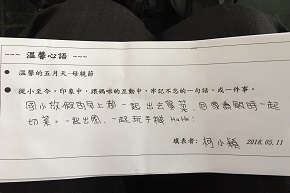 --- 溫馨心語 ---
● 溫馨的五月天-母親節
● 從小至今,印象中,跟媽咪的互動中,牢記不忘的一句話。或一件事。
國小放假的早上都一起出去買菜 回家煮飯時一起
切菜。一起出國,一起玩手機 HaHa!
填表者: 柯小穎
2018.05.11